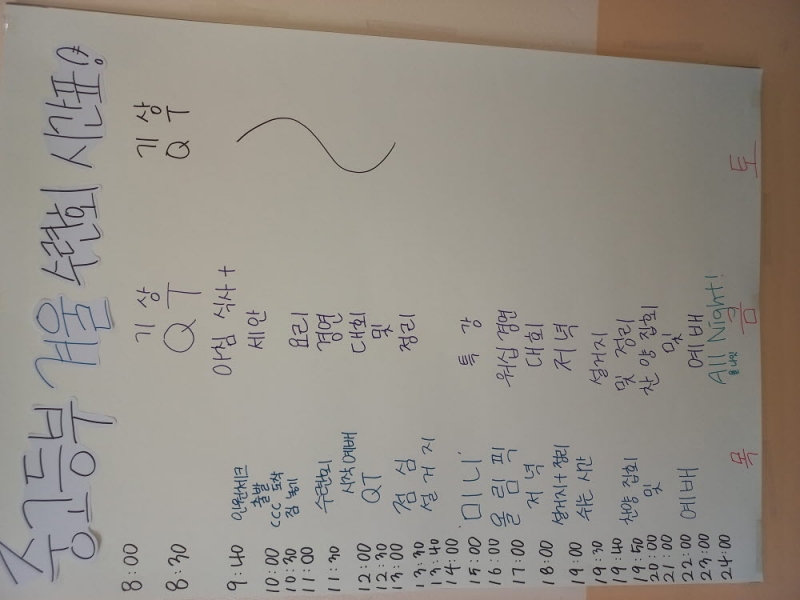 중고등부 겨울 수련회 시간표
8:00
8:30
9:40
10:00
10:30
11:00
11:30
12:00
12:30
13:00
13:30
13:40
14:00
15:00
16:00
17:00
18:00
19:00
19:30
19:40
19:50
20:00
21:00
22:00
23:00
24:00
인원체크
출발
CCC 도착
짐 놓기
수련회
시작예배
QT
점심
설거지
미니
올림픽
저녁
설거지+정리
쉬는 시간
찬양 집회
및
예배
목
기상
QT
아침 식사+
세안
요리
경연
대회
및
정리
특강
워십 경연
대회
저녁
설거지
및 정리
찬양 집회
및
예배
All Night!
올나잇
금
기상
QT
토